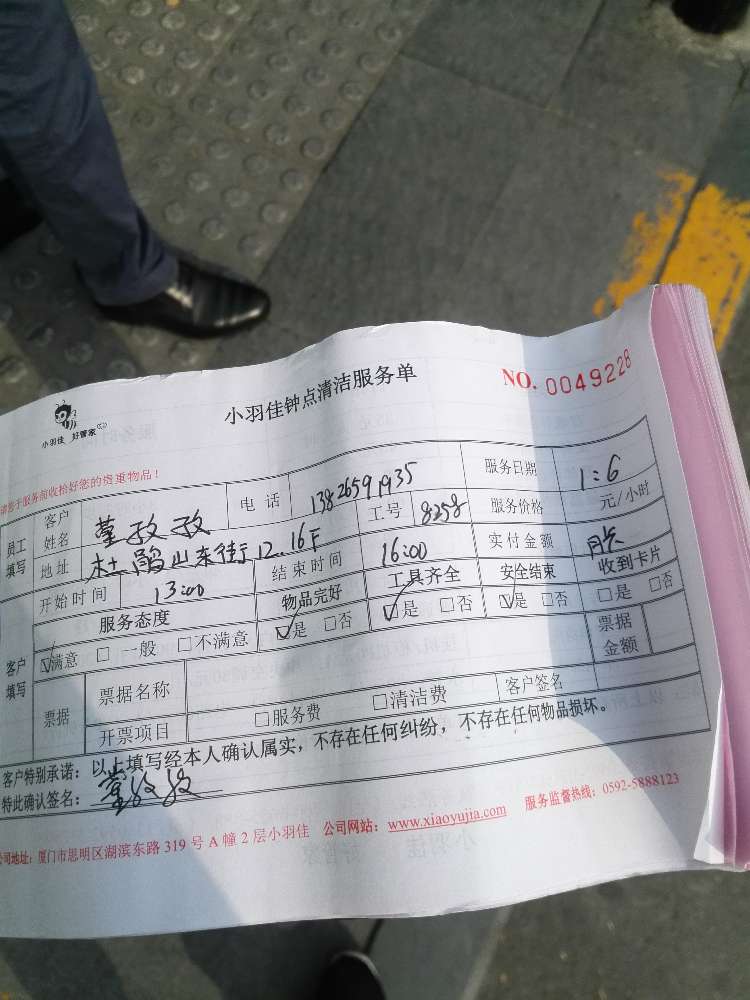 小羽佳 好管家
小羽佳钟点清洁服务单
NO. 0049228
请您于服务前收拾好您的贵重物品!
员工填写
客户姓名 董孜孜 电话 13826591935 服务日期 1:6
地址 山东街12.16F 工号 8258 服务价格 元/小时
开始时间 13:00 结束时间 16:00 实付金额
客户填写
服务态度 物品完好 工具齐全 安全结束 收到卡片
☑满意 □一般 □不满意 ☑是 □否 ☑是 □否 ☑是 □否 □是 □否
票据 票据名称 票据金额
开票项目 □服务费 □清洁费 客户签名
客户特别承诺:以上填写经本人确认属实,不存在任何纠纷,不存在任何物品损坏。
特此确认签名: 董孜孜
公司地址:厦门市思明区湖滨东路 319 号 A 幢 2 层小羽佳 公司网站:www.xiaoyujia.com 服务监督热线:0592-5888123